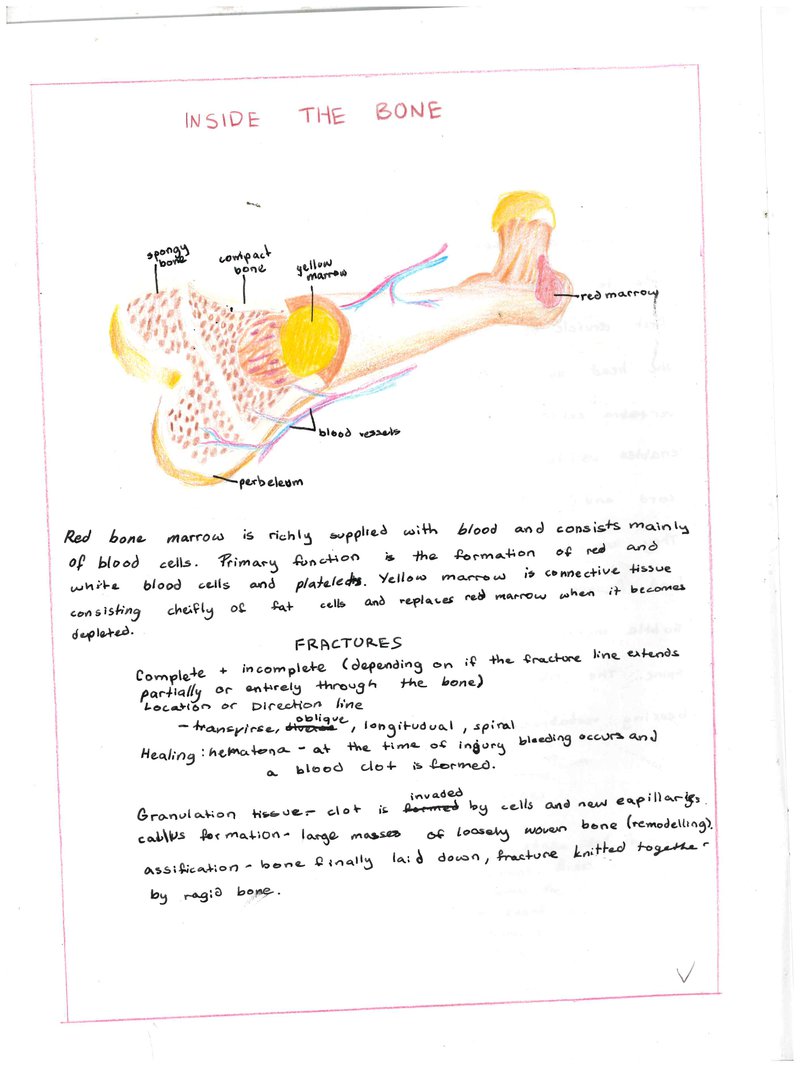 INSIDE THE BONE
spongy bone
compact bone
yellow marrow
red marrow
blood vessels
perbeleum
Red bone marrow is richly supplied with blood and consists mainly
of blood cells. Primary function is the formation of red and
white blood cells and platelets. Yellow marrow is connective tissue
consisting cheifly of fat cells and replaces red marrow when it becomes
depleted.
FRACTURES
Complete + incomplete (depending on if the fracture line extends
partially or entirely through the bone)
Location or Direction line
- transvirse, oblique, longitudual, spiral
Healing: hematona - at the time of injury bleeding occurs and
a blood clot is formed.
Granulation tissue - clot is formed invaded by cells and new capillaries.
callus formation - large masses of loosely woven bone (remodelling).
assification - bone finally laid down, fracture knitted together
by ragid bone.